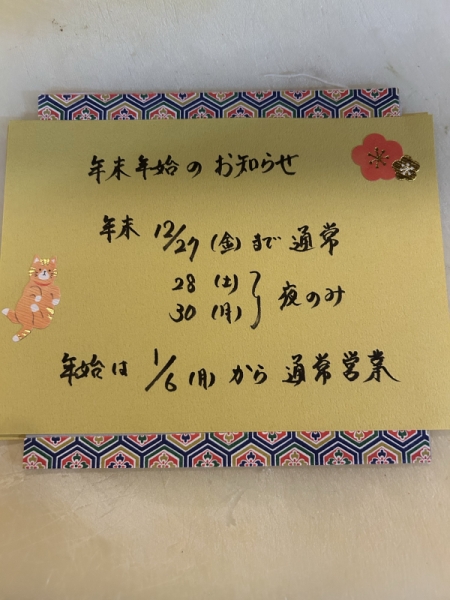 年末年始のお知らせ
年末 12/27(金)まで通常
28(土)
30(月)
夜のみ
年始は 1/6(月)から通常営業